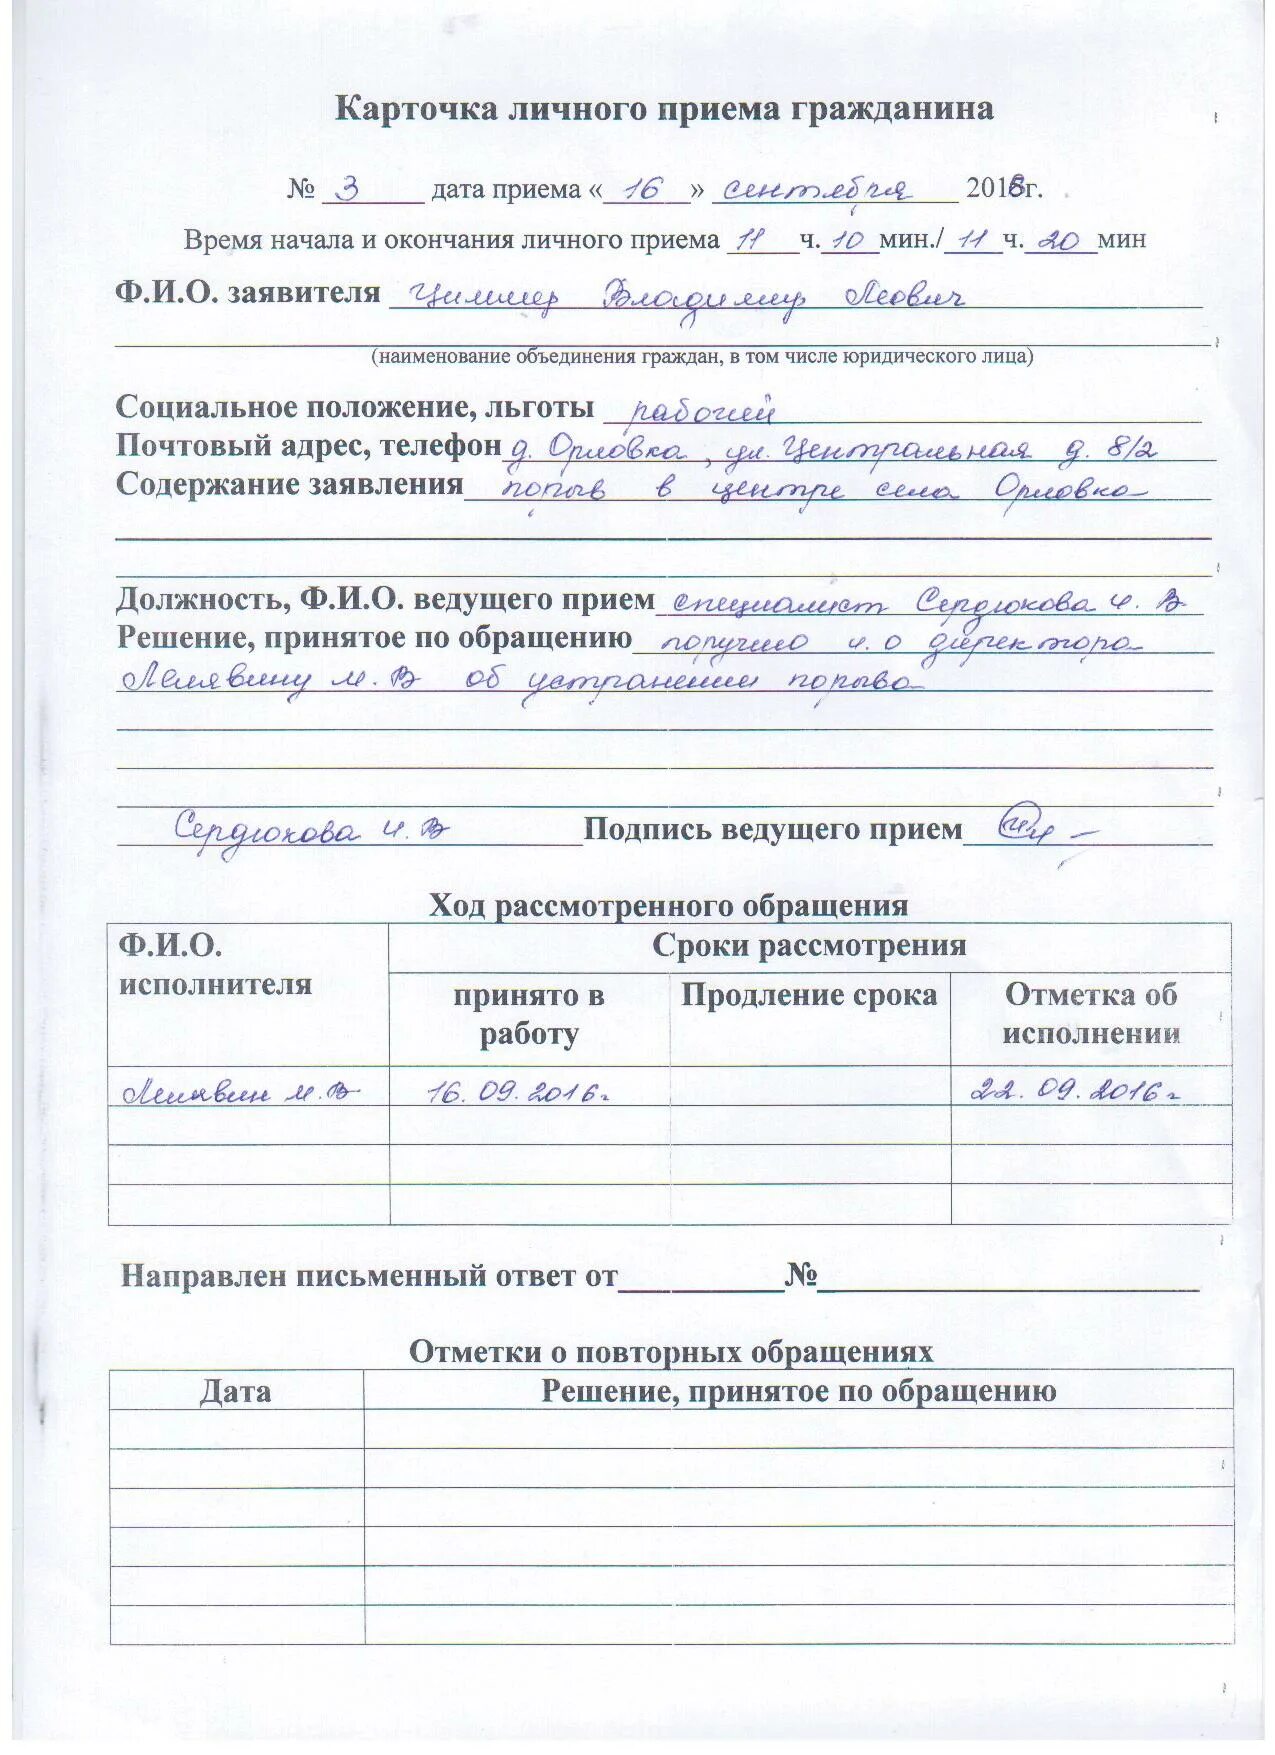 Карточка личного приема гражданина
№ 3 дата приема « 16 » сентября 2016г.
Время начала и окончания личного приема 11 ч. 10 мин./ 11 ч. 20 мин
Ф.И.О. заявителя Циммер Владимир Леович
(наименование объединения граждан, в том числе юридического лица)
Социальное положение, льготы рабочий
Почтовый адрес, телефон д. Орловка, ул. Центральная д. 8/2
Содержание заявления в центре села Орловка
Должность, Ф.И.О. ведущего прием специалист Сердюкова И. В
Решение, принятое по обращению поручено и. о директора
Лелявину М. В об устранении порыва
Сердюкова И. В Подпись ведущего прием
Ход рассмотренного обращения
Ф.И.О. исполнителя Сроки рассмотрения
принято в работу Продление срока Отметка об исполнении
Лелявин М. В 16. 09. 2016г 22. 09. 2016г
Направлен письменный ответ от №
Отметки о повторных обращениях
Дата Решение, принятое по обращению